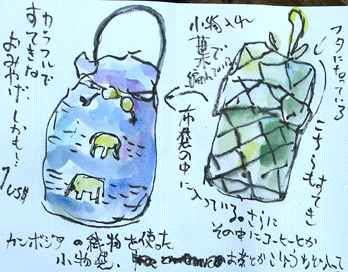 フタになっている
こちらもすてき
小物入れ
葉で
編んでいる
布袋の中に
入っている。さらに
その中にコーヒーとか
お茶とかこしょうも入って
カラフルで
すてきな
おみやげ しかも…
1US$
カンボジアの織物を使った
小物袋.